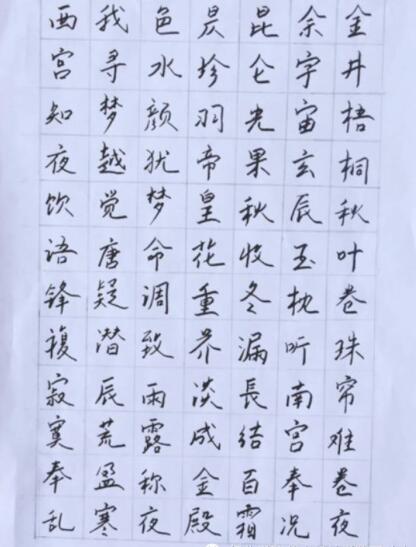 金井梧桐秋叶卷珠帘难卷夜
余字宙玄辰玉枕听南宫奉况
昆仑光果秋收冬漏長结百霜
珍羽帝皇花重芥淡成金殿
色水颜犹梦命调致雨露称夜
我寻梦越觉唐疑潜辰荒盈寒
西宫知夜饮语锋複寂寞奉乱